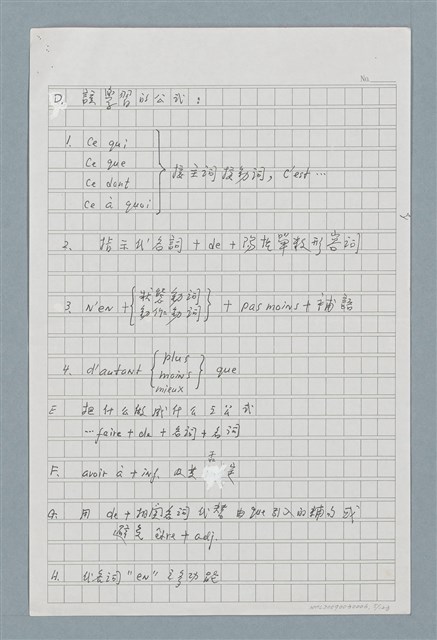 No.
D. 該學習的公式：
1. ce qui
ce que
ce dont
ce à quoi
接主詞接動詞, c'est …
2. 指示代名詞 + de + 陽性單數形容詞
3. N'en + { 狀態動詞 動作動詞 } + pas moins + 補語
4. d'autant { plus moins mieux } que
E 把什么做成什么之公式
… faire + de + 名詞 + 名詞
F. avoir à + inf. 及其否定
G. 用 de + 相應名詞代替由 que 引入的補句或
避免 être + adj.
H. 代名詞 "en" 之多功能